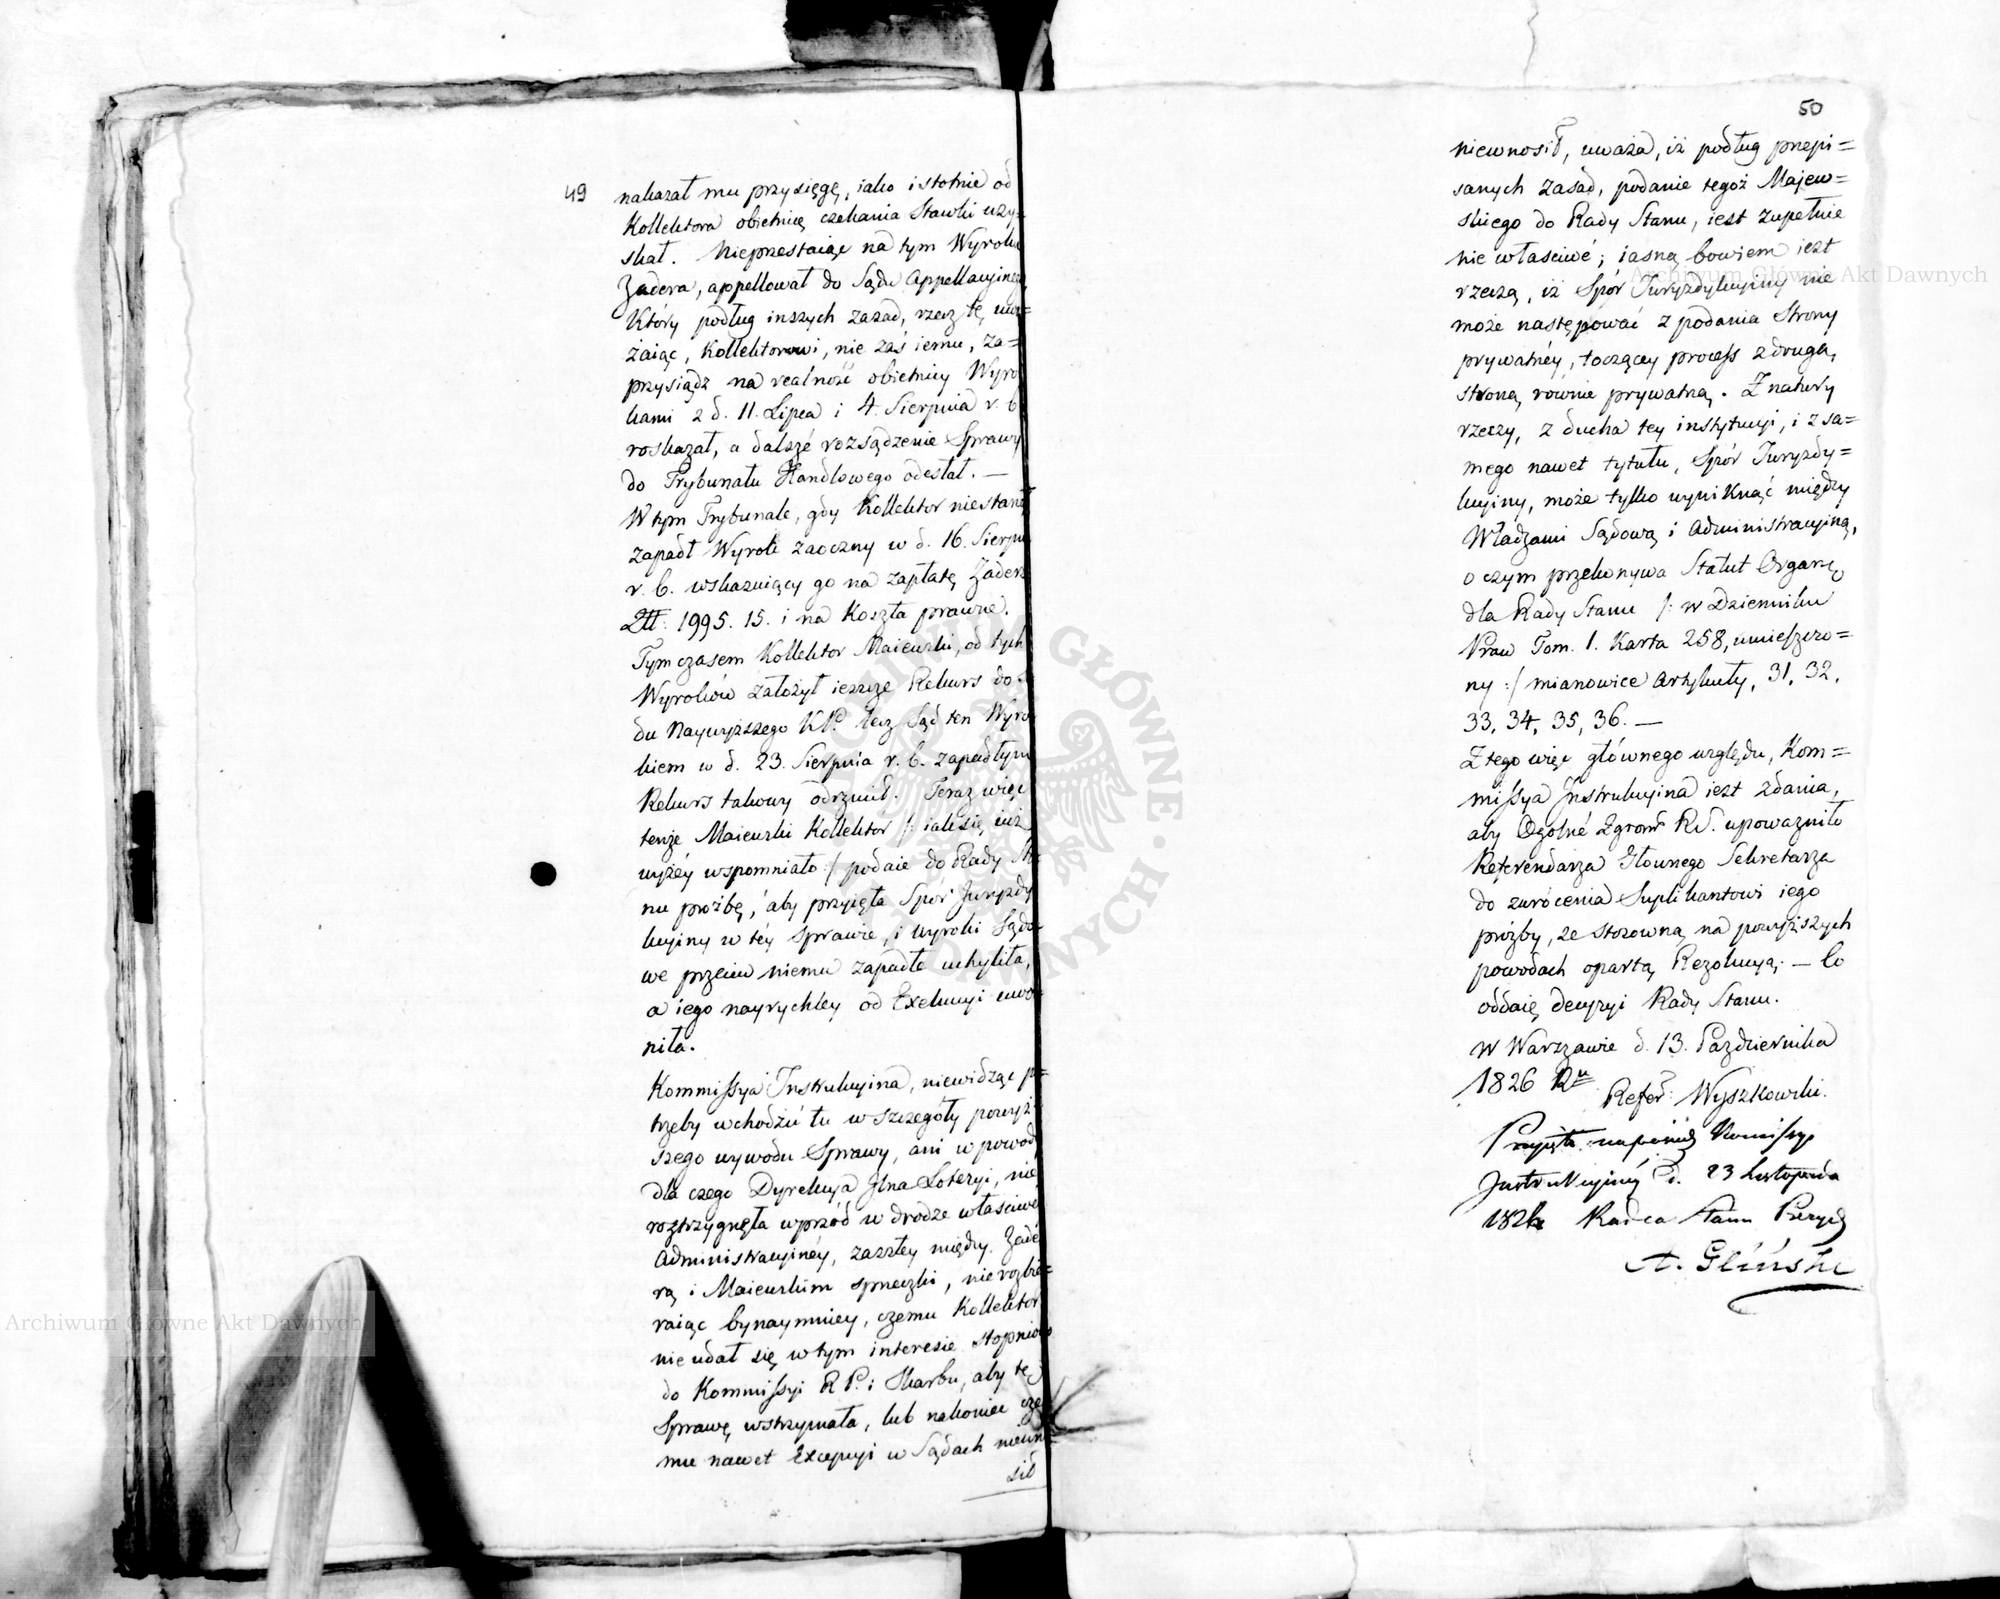 49
nakazał mu przysięgę, iako istotnie od
Kollektora obietnicę czekania Stawki uzy=
skał. Nieprzestaiąc na tym Wyroku
Zadera, appellował do Sądu Appellacyineg
Który podług inszych zasad, rzecz tę uwa=
żaiąc, Kollektorowi, nie zaś iemu, za=
przysiądz na realność obietnicy Wyro
kami z d. 11. Lipca i 4. Sierpnia r. b
roskazał, a dalszé rozsądzenie Sprawy
do Trybunału Handlowego odesłał. —
W tym Trybunale, gdy Kollektor niestaną
zapadł Wyrok zaoczny w d. 16. Sierpn
r. b. wskazuiący go na zapłatę Zader
1995. 15. i na Koszta prawne.
Tymczasem Kollektor Maiewski, od tych
Wyroków założył ieszcze Rekurs do S
du Naywyższego KP. lecz Sąd ten Wyro
kiem w d. 23. Sierpnia r. b. zapadłym
Rekurs takowy odrzucił. Teraz więc
tenże Maiewski Kollektor /: iak się iuż
wyżéy wspomniało :/ podaie do Rady Sta
nu proźbę, aby przyięła Spór Juryzdy
kcyiny w téy sprawie, i wyroki Sądo=
we przeciw niemu zapadłe uchyliła,
a iego nayrychley od Exekucyi uwo
niła.
Kommissya Instrukcyina, niewidząc po=
trzeby wchodzić tu w szczegóły powyż
szego wywodu Sprawy, ani w powod
dla czego Dyrekcya Jlna Loteryi, nie
roztrzygnęła wprzód w drodze właściwé
Administracyinéy, zaszłey między Zade
rą i Maiewskim sprzeczki, nierozbie=
raiąc bynaymniey, czemu Kollektor
nie udał się w tym interesie stopniowo
do Kommissyi R. P. i Skarbu, aby tę
Sprawę wstrzymała, lub nakoniec cze
mu nawet Excepcyi w Sądach niewno
sił
50
niewnosił, uważa, iż podług przepi=
sanych zasad, podanie tegoż Majew=
skiego do Rady Stanu, iest zupełnie
niewłaściwé; iasną bowiem iest
rzeczą, iż Spór Juryzdykcyiny nie
może następować z podania Strony
prywatnéy, toczącey process z drugą
stroną równie prywatną. Z natury
rzeczy, z ducha tey instytucyi, i z sa=
mego nawet tytułu, Spór Juryzdy=
kcyiny, może tylko wyniknąć między
Władzami Sądową i Administracyiną,
o czym przekonywa Statut Organi.
dla Rady Stanu /: w Dzienniku
Praw Tom. 1. Karta 258, umieszczo=
ny :/ mianowice Artykuły, 31, 32,
33, 34, 35, 36. —
Z tego więc głównego względu, Kom=
missya Instrukcyina iest zdania,
aby Ogólné Zgrom. RS. upoważniło
Referendarza Głownego Sekretarza
do zwrócenia Suplikantowi iego
próźby, ze stosowną na powyższych
powodach opartą Rezolucyą; — Co
oddaię decyzyi Rady Stanu.
W Warszawie d. 13. Pazdziernika
1826 Ru
Refer: Wyszkowski.
Przyięta na posiedz Komissyi
Instrukcyiney d. 23 Listopada
1826 Radca Stanu Prezyd
A. Gliński
Archiwum Główne Akt Dawnych
Archiwum Główne Akt Dawnych